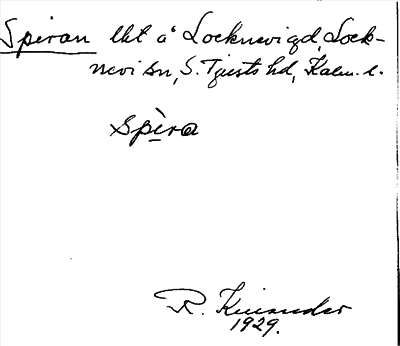 Spiran lkt å Locknevi gd, Lock-
nevi sn, S. Tjusts hd, Kalm. l.
spìra
R. Kuiander
1929.